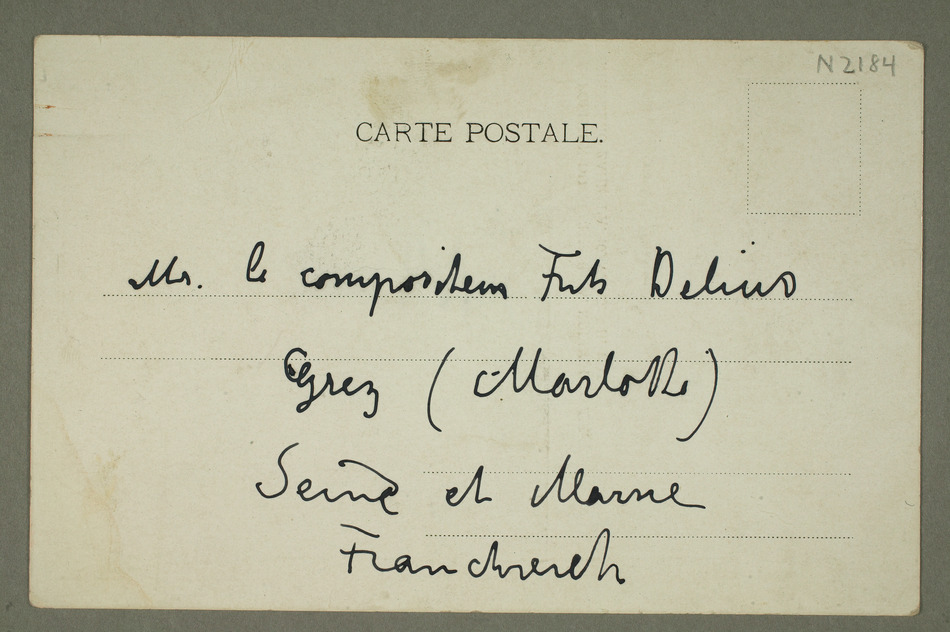 N 2184
CARTE POSTALE.
Mr. le compositeur Frits Delius
Grez (Marlotte)
Seine et Marne
Franchreich